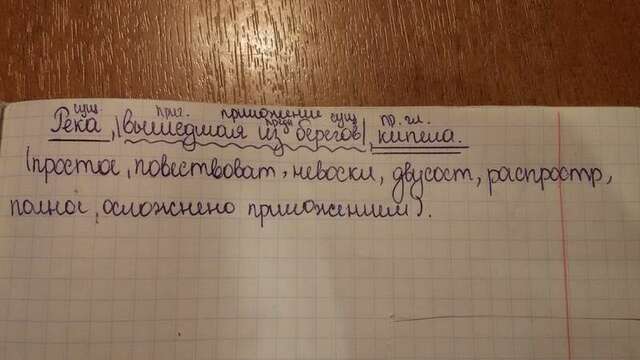 сущ. прич. приложение сущ. гл.
Река, |вышедшая из берегов|, кипела.
предл
(простое, повествоват, невоскл, двусост, распростр,
полное, осложнено приложением).